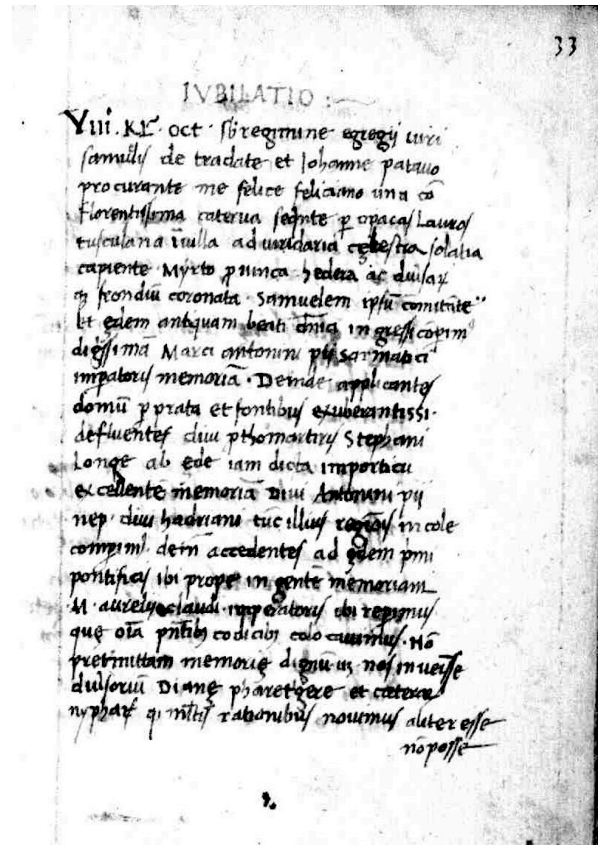 33
IVBILATIO
VIII. KL. oct. sb regimine egregij viri
samuelis de tradate et Iohanne patavo
procurante me felice feliciano una cō
florentissima caterva seqnte p opacas Lauros
tusculana ī villa ad viridaria cęlestia solatia
capiente Myrto pvinca hedera ac diusaȝ
frondiū coronata Samuelem ipsū comitate
Et ędem antiquam beati dnīci ingressi comperim
digissimā Marci antonini pij sarmatici
impatoris memoriā. Deinde applicantes
domū p prata et fontibus exuberantissi.
defluentes divi pthomartiris Stephani
Longe ab ede iam dicta importicu
excellentē memoriā Divi Antonini pij
nep. divi hadriani tūc illius regiōis incole
comprim. dein accedentes ad ędem pmi
pontificis ibi prope ingentē memoriam
M. aurelij claudi imperatoris ibi repimus
quę oīa pntibȝ codicibȝ colocavimus. Nō
pretmittam memorię dignū nos invēsse
dulsoriū Dianę pharetgere et cæterar
nyphaȝ qi mltis rationibus novimus aliter esse
nō posse